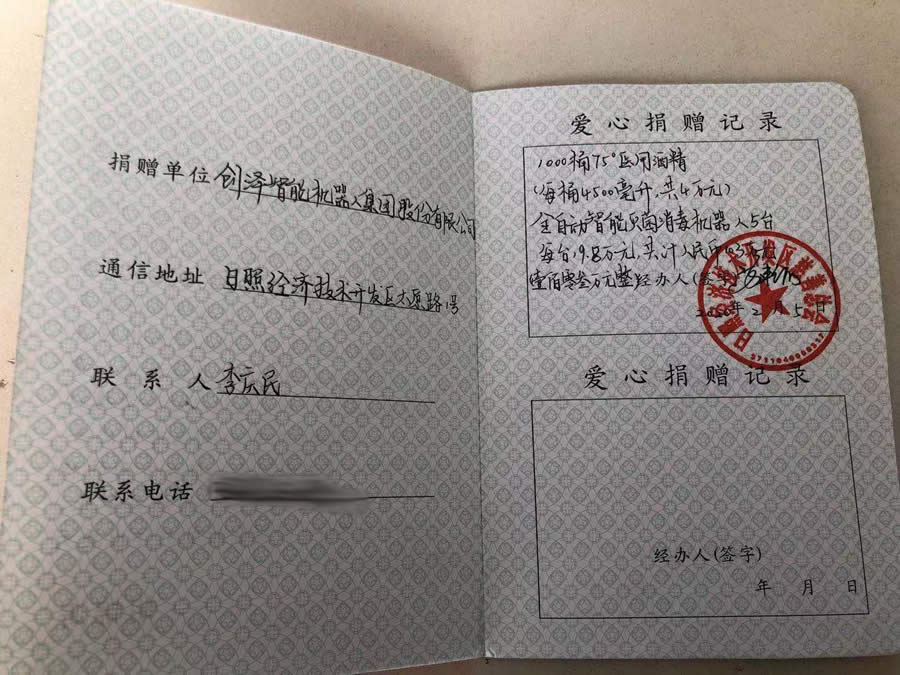 捐赠单位 创泽智能机器人集团股份有限公司
通信地址 日照经济技术开发区太原路 号
联 系 人 李庆民
联系电话
爱心捐赠记录
1000桶75°医用酒精
(每桶4500毫升,共4万元)
全自动智能灭菌消毒机器人5台
每台19.8万元,共计人民币
壹佰零叁万元整 经办人(签字)
2020年2月5日
日照经济技术开发区慈善总会
爱心捐赠记录
经办人(签字)
年 月 日